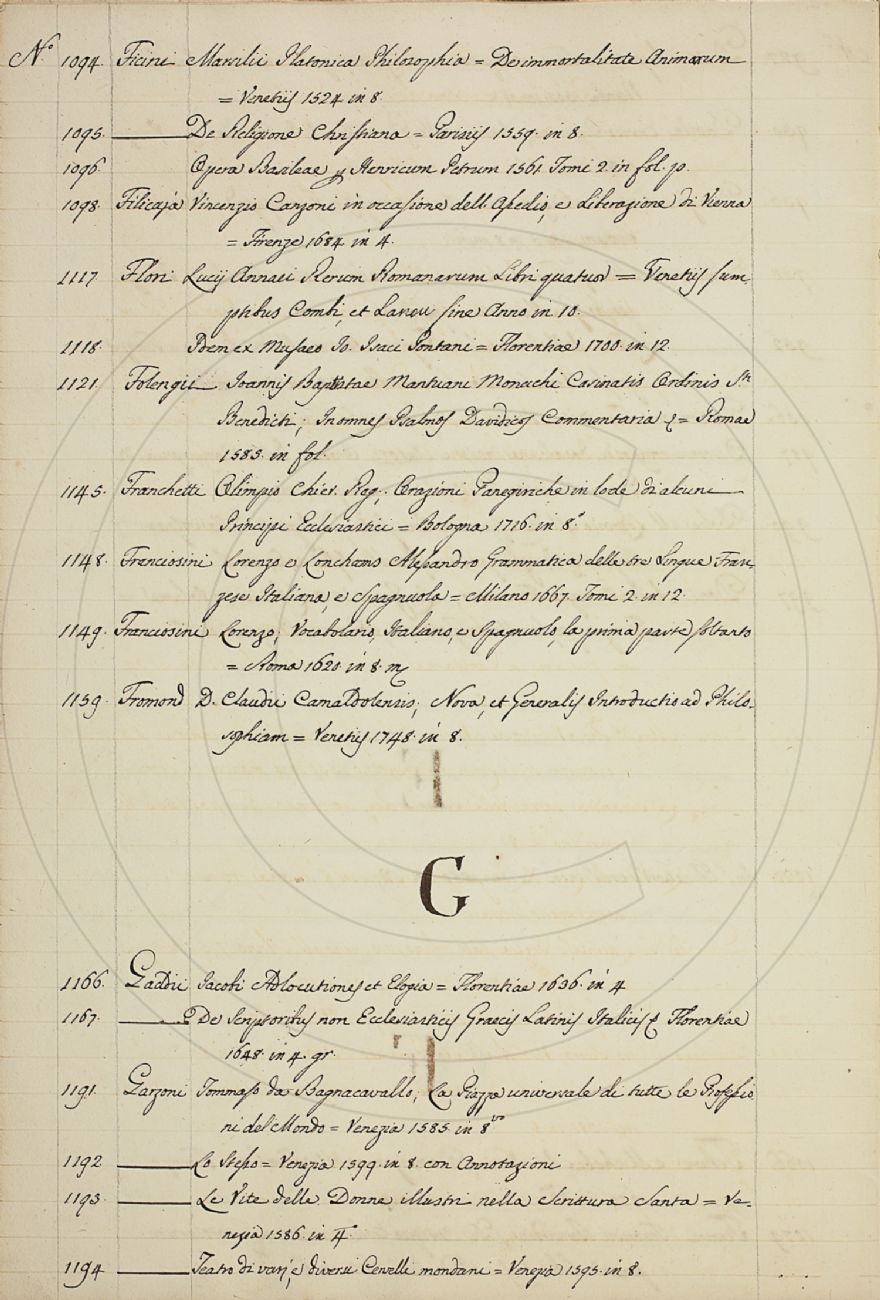 N.º 1094. Ficini Marsilii Platonica Philosophia = De immortalitate Animarum
= Venetijs 1524 in 8.
1095. De Religione Christiana = Parisiis 1559. in 8.
1096. Opera Basileae Henricum Petrum 1561. Tomi 2. in fol. p.
1098. Filicaja Vincenzio Canzoni in occasione dell'Assedio, e Liberazione di Vienna
= Firenze 1684 in 4.
1117 Flori Lucij Annaei Rerum Romanarum Libri quatuor = Venetijs sum-
ptibus Combi, et Lanou sine Anno in 10.
1118. Poem ex Musaeo Jo. Isaci Pontani = Florentiae 1700. in 12.
1121 Folengii Joannis Baptistae Mantuani Monachi Casinatis Ordinis Sti.
Benedicti; In omnes Psalmos Davidicos Commentaria = Romae
1585. in fol.
1145. Franchetti Olimpio Chier. Reg.; Orazioni Panegiriche in lode di alcuni
Principi Ecclesiastici = Bologna 1716. in 8.º
1148. Franciosini Lorenzo e Alessandro Grammatica delle tre Lingue Fran-
zese Italiana, e Spagnuola = Milano 1667. Tomi 2. in 12.
1149. Franciosini Lorenzo; Vocabolario, Italiano, e Spagnuolo, la prima parte soltanto
= Roma 1620. in 8. m
1159. Fromond D. Claudii Camaldolensis; Nova, et Generalis Introductio ad Philo-
sophiam = Venetijs 1748. in 8.
G
1166. Gaddii Jacobi Adlocutiones et Elogia = Florentiae 1636. in 4
1167. De Scriptoribus non Ecclesiasticis Graecis Latinis Italicis Florentiae
1648. in 4. gr.
1191. Garzoni Tommaso da Bagnacavallo; La Piazza universale di tutte le Professio
ni del Mondo = Venezia 1585. in 8vo
1192 Lo Stesso = Venezia 1599. in 8. con Annotazioni
1193. Le Vite delle Donne illustri nella Scrittura Santa = Ve-
nezia 1586. in 4º
1194 Teatro di varj, e diversi Cervelli mondani = Venezia 1595. in 8.